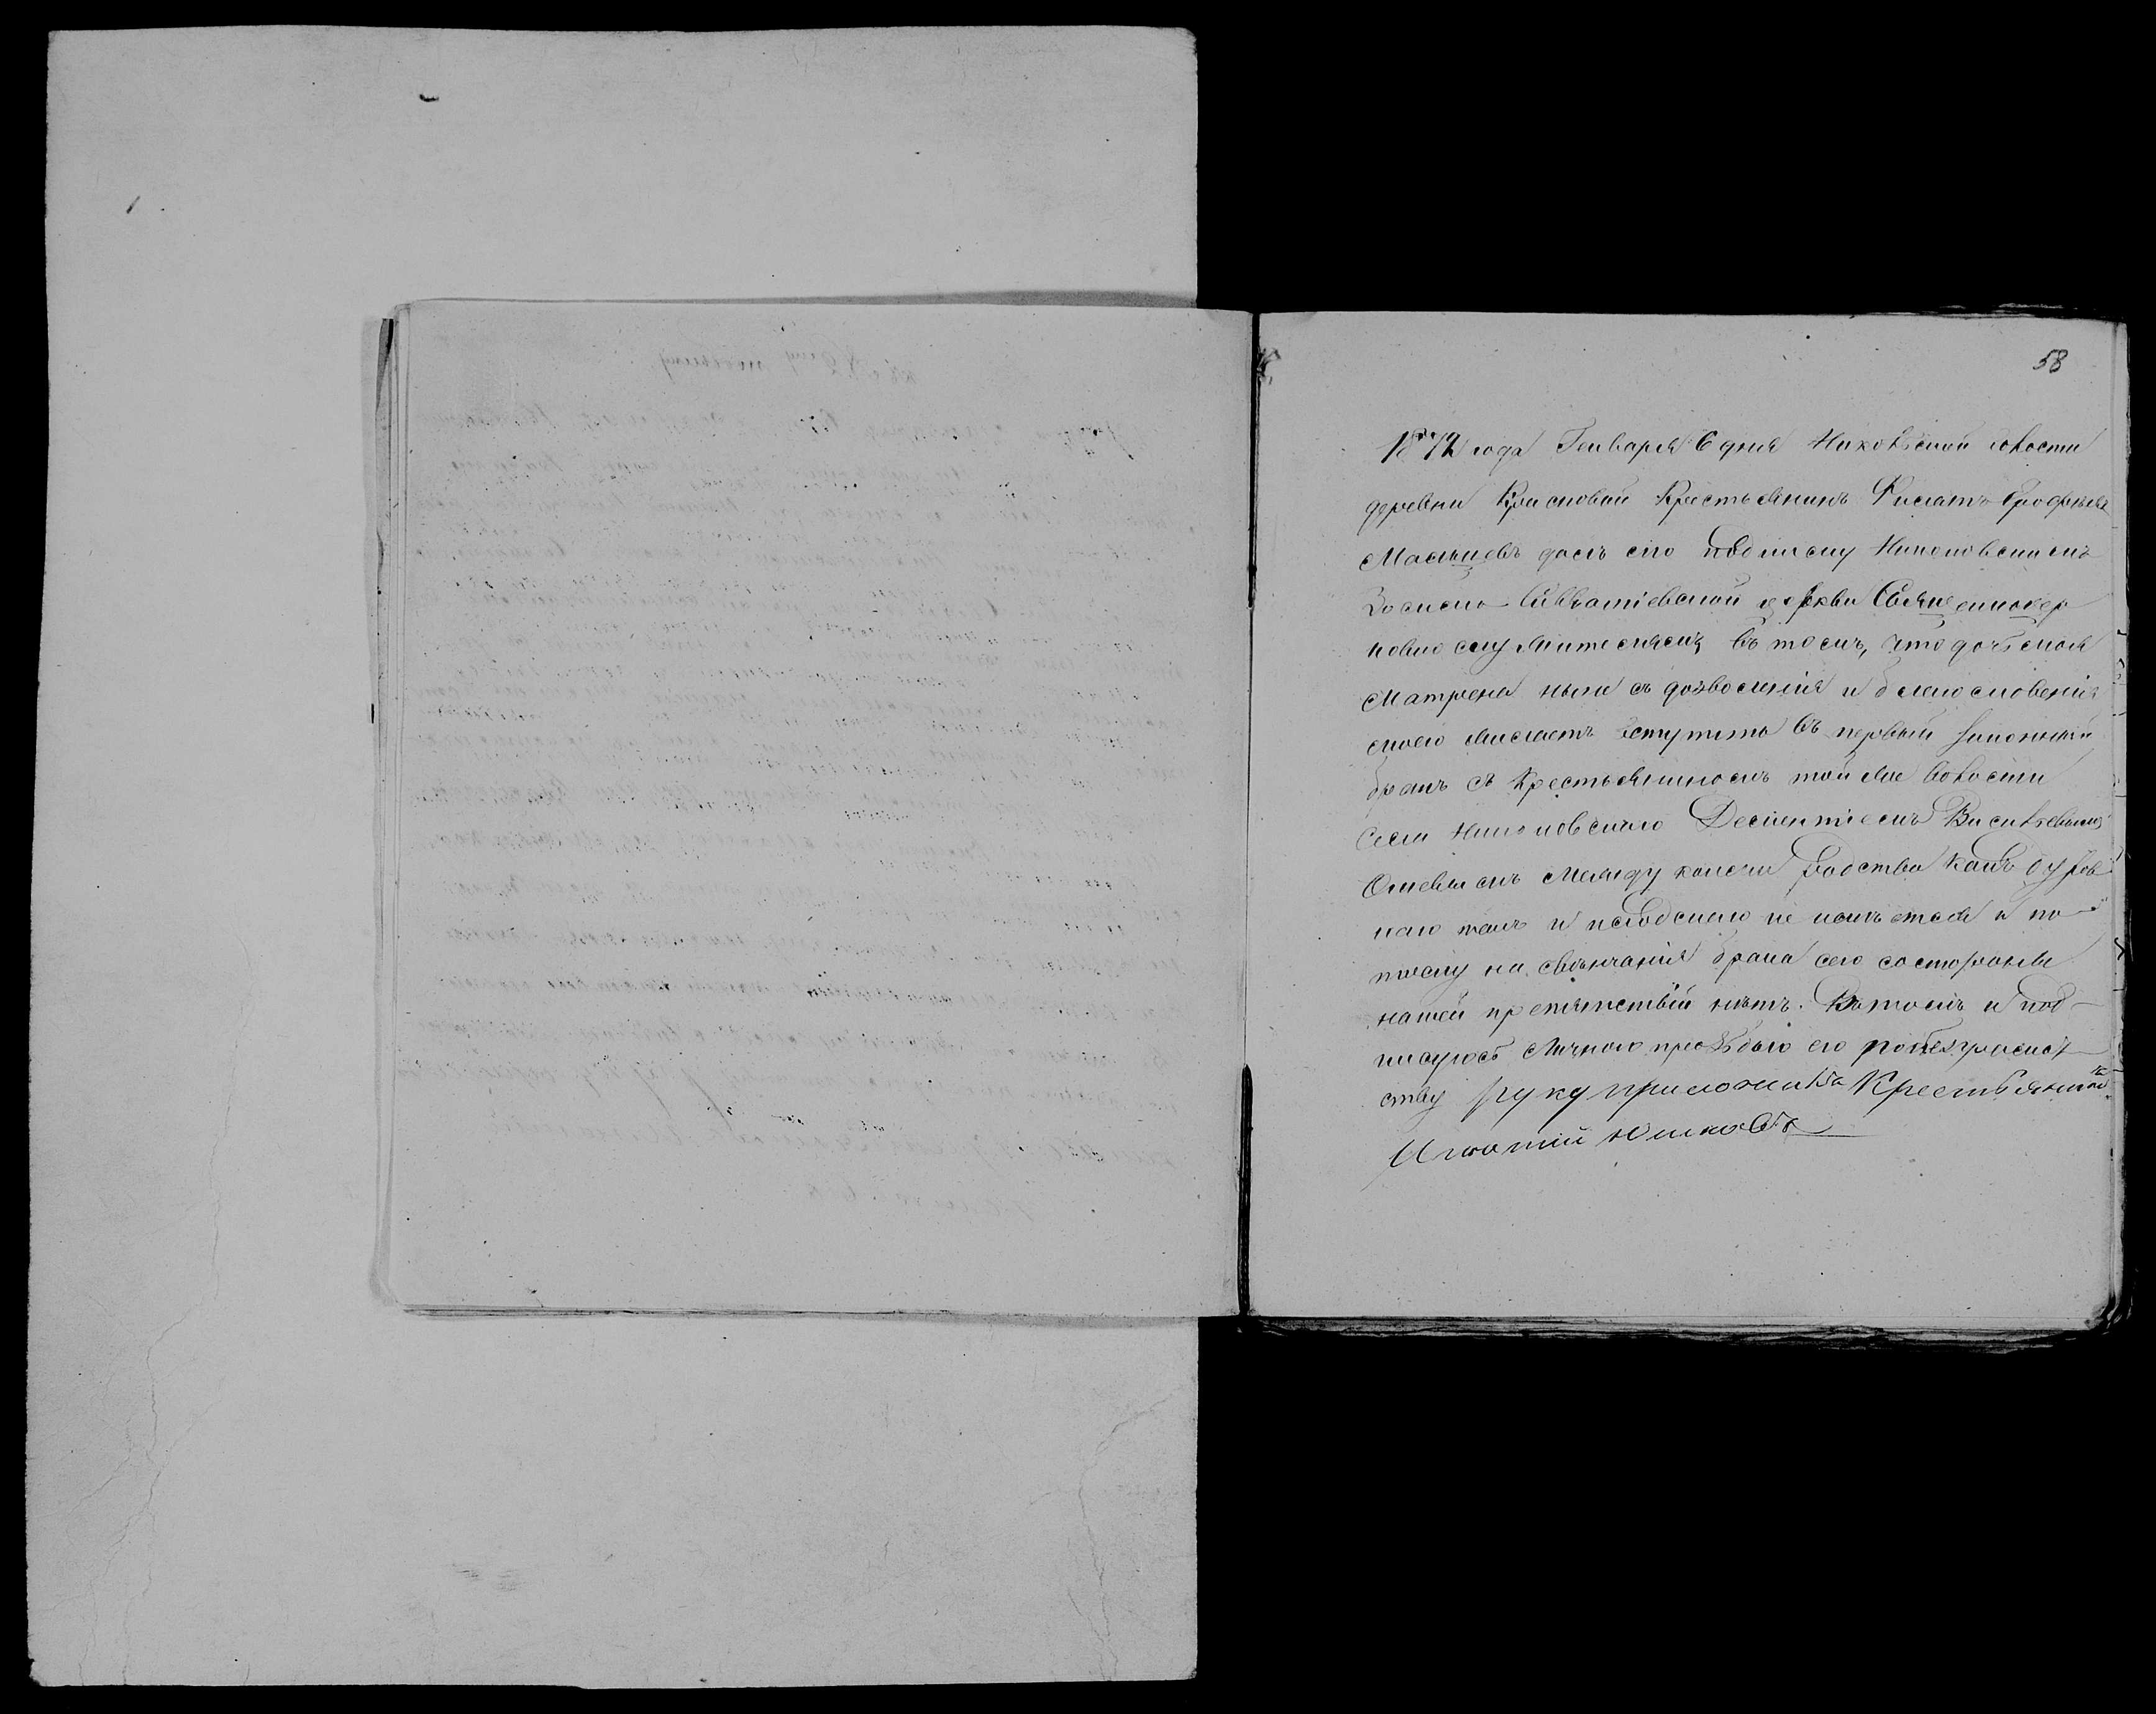 58
1872 года Генваря 6 дня Никольской волости
деревни Крисковой Крестьянинъ Филатъ Ерофѣевъ
Мальцевъ далъ сію подписку
Зосимо-Савватіевской церкви Священноцер
ковно служителямъ въ томъ, что дочь моя
Матрена нынѣ съ дозволенія и благословенія
моего желаетъ вступить въ первый законный
бракъ съ Крестьяниномъ той же волости
Села Дементіемъ
между коими родства какъ духов
наго такъ и плодскаго не имѣется и по
тому на свѣнчанія брака сего состороны
нашей препятствій нѣтъ. Вътомъ и под-
писуюсь личною прозьбою его по безграмот
ству руку приложилъ Крестьянинъ
Игнатий Юшковъ